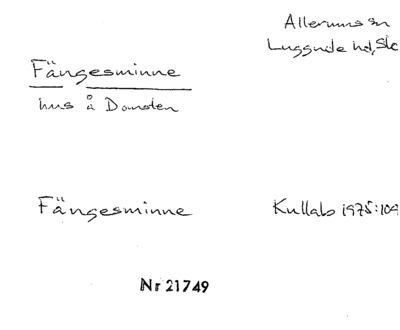 Allerums sn
Luggude hd, Sk
Fängesminne
hus å Domsten
Fängesminne
Kullabo 1975:109
Nr 21749